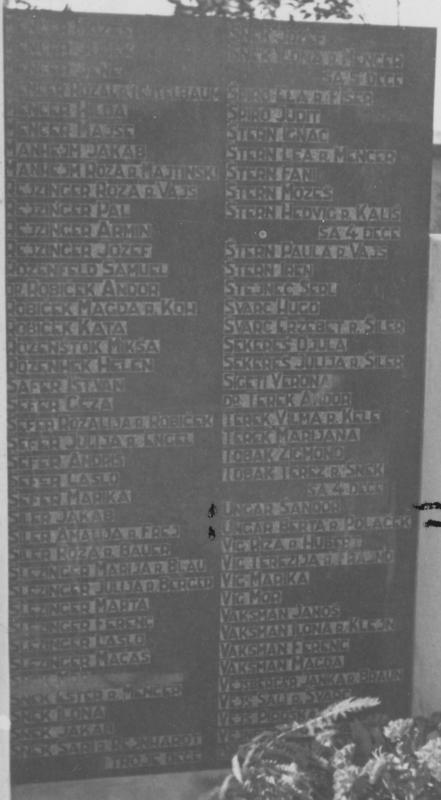 MENCER MOZES
MENCER
MENCER JANE
MENCER ROZALIJA TEITELBAUM
MENCER HILDA
MENCER MAJŠE
MANHEJM JAKAB
MANHEJM ROZA R. MAJTINSKI
REJZINGER ROZA R. VAJS
REJZINGER PAL
REJZINGER ARMIN
REJZINGER JOZEF
ROZENFELD SAMUEL
DR. ROBIČEK ANDOR
ROBIČEK MAGDA R. KOH
ROBIČEK KATA
ROZENŠTOK MIKŠA
ROZENHEK HELEN
ŠAFER IŠTVAN
ŠEFER GEZA
ŠEFER ROZALIJA R. ROBIČEK
ŠEFER JULIJA R. ENGEL
ŠEFER ANDRIŠ
ŠEFER LASLO
ŠEFER MARIKA
JAKAB
ŠILER AMALIJA R. FREJ
ŠILER ROZA R. BAUER
ŠLEZINGER MARIJA R. BLAU
ŠLEZINGER JULIJA R. BERGER
ŠLEZINGER MARTA
ŠLEZINGER FERENC
ŠLEZINGER LASLO
ŠLEZINGER MAGAŠ
ŠNEK ESTER R. MENCER
ŠNEK ILONA
ŠNEK JAKAB
ŠNEK ŠARI R. REJNHARDT
TROJE DECE
ŠNEK JOZEF
ŠNEK ILONA R. MENCER
SA 5 DECE
ŠPIRO ELA R. FIŠER
ŠPIRO JUDIT
ŠTERN IGNAC
ŠTERN LEA R. MENCER
ŠTERN FANI
ŠTERN MOZEŠ
ŠTERN HEDVIG R. KALIŠ
SA 4 DECE
ŠTERN PAULA R. VAJS
ŠTERN IREN
ŠTEJNEC ŠERL
ŠVARC HUGO
ŠVARC ERZEBET R. ŠILER
SEKEREŠ DJULA
SEKEREŠ JULIJA R. ŠILER
SIGETI VERONA
DR. TEREK ANDOR
TEREK VILMA R. KELE
TEREK MARIJANA
TOBAK ZIGMOND
TOBAK TEREZ R. ŠNEK
SA 4 DECE
UNGAR ŠANDOR
UNGAR BERTA R. POLAČEK
VIG RIZA R. HUBERT
VIG TEREZIJA R. FRAJND
VIG MARIKA
VIG MOR
VAKSMAN JANOŠ
VAKSMAN ILONA R. KLEJN
VAKSMAN FERENC
VAKSMAN MAGDA
VEJSBERGER JANKA R. BRAUN
VEJS ŠALI R. ŠVARC
VEJS